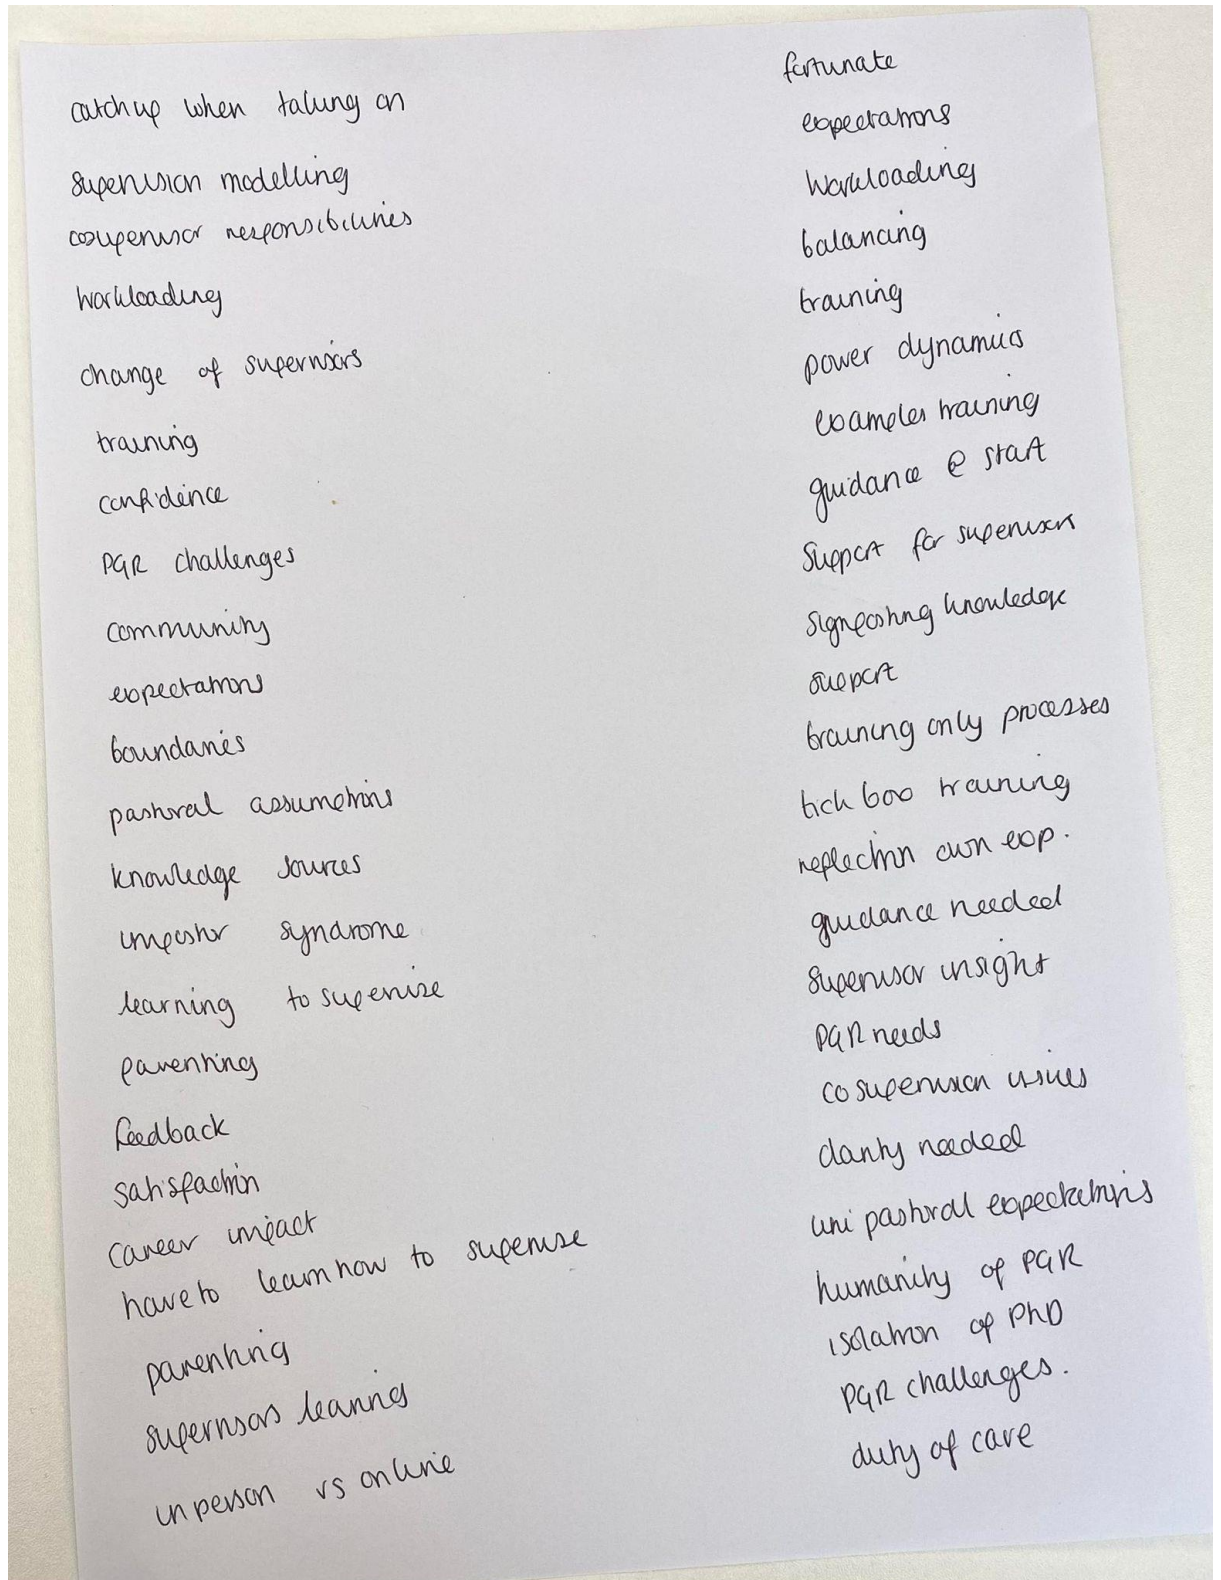 catch up when taking on
supervision modelling
cosupervisor responsibilities
workloading
change of supervisors
training
confidence
PGR challenges
community
expectations
boundaries
pastoral assumptions
knowledge sources
imposter syndrome
learning to supervise
parenting
feedback
satisfaction
career impact
have to learn how to supervise
parenting
supervisors learning
in person vs online
fortunate
expectations
workloading
balancing
training
power dynamics
examples training
guidance @ start
support for supervisors
signposting knowledge
support
training only processes
tick box training
reflection own exp.
guidance needed
supervisor insight
PGR needs
cosupervision issues
clarity needed
uni pastoral expectations
humanity of PGR
isolation of PhD
PGR challenges.
duty of care